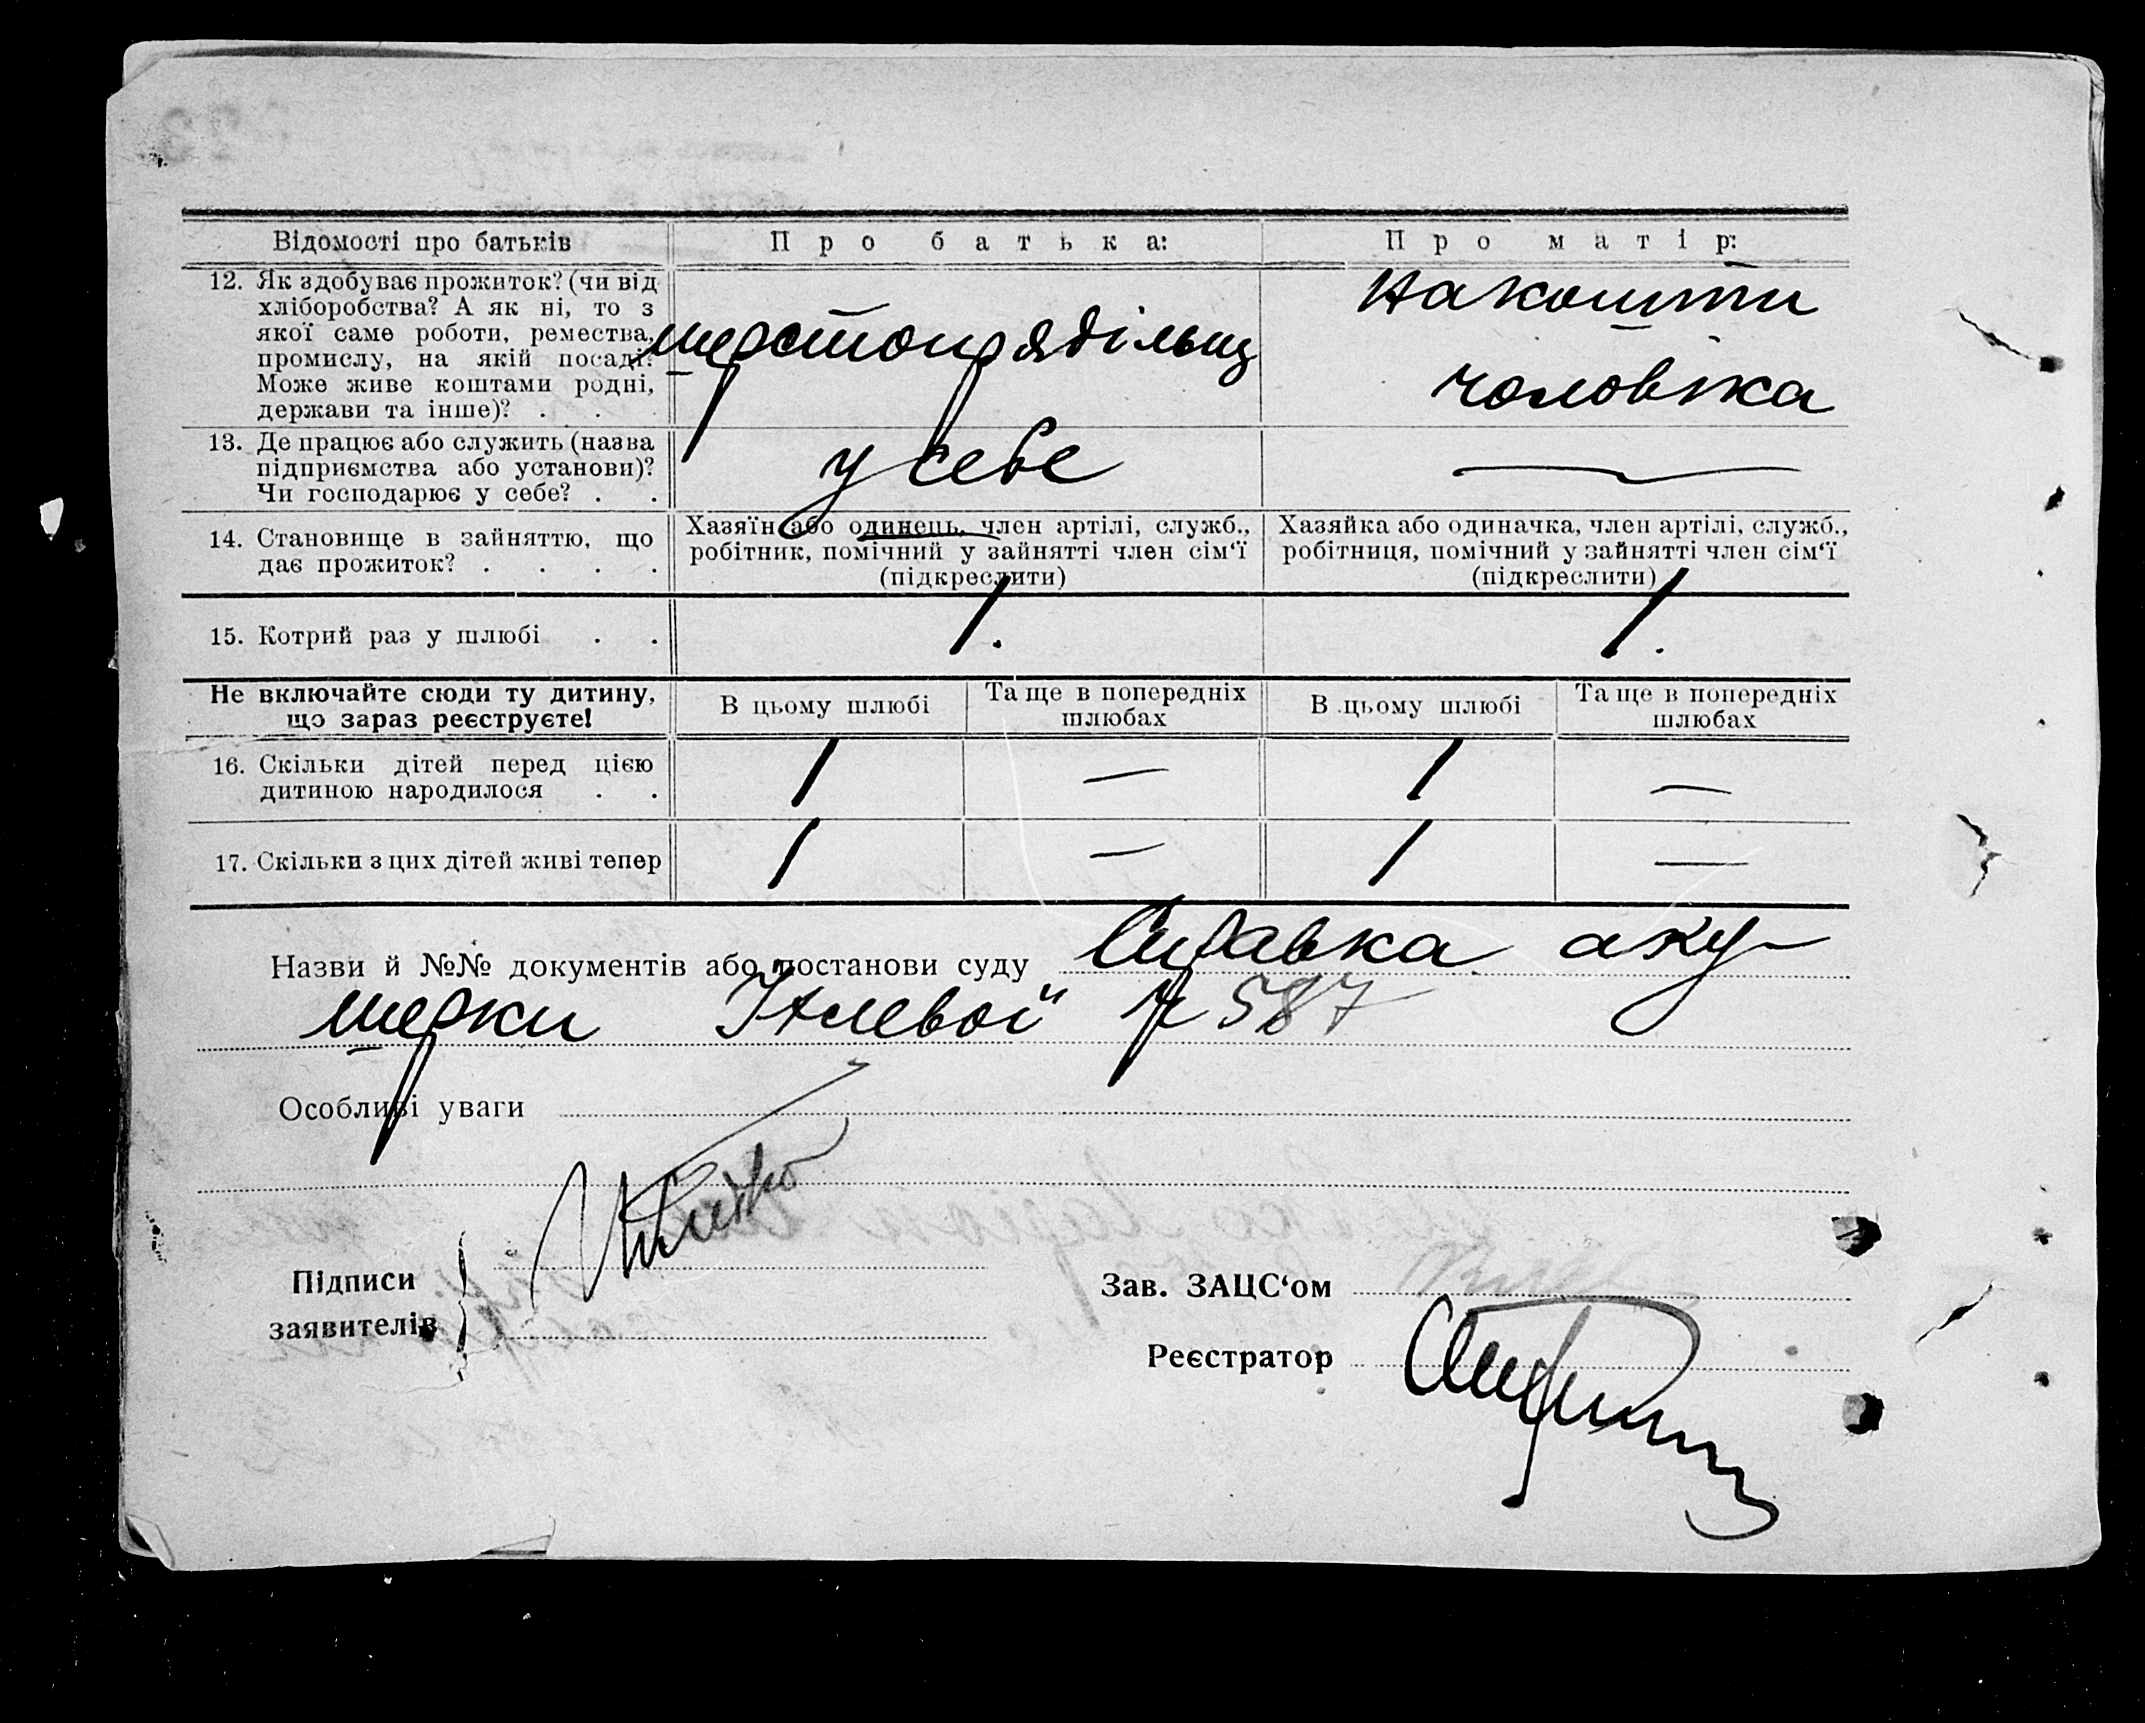 Відомості про батьків
Про батька:
Про матір:
12. Як здобуває прожиток? (чи від
хліборобства? А як ні, то з
якої саме роботи, ремества,
промислу, на якій посаді?
Може живе коштами родні,
держави та інше)? . .
шерстопрядільщ
На кошти
чоловіка
13. Де працює або служить (назва
підприємства або установи)?
Чи господарює у себе? . .
у себе
—
14. Становище в зайняттю, що
дає прожиток? . . . .
Хазяїн або одинець, член артілі, служб.,
робітник, помічний у зайнятті член сім‘ї
(підкреслити)
Хазяйка або одиначка, член артілі, служб.,
робітниця, помічний у зайнятті член сім‘ї
(підкреслити)
15. Котрий раз у шлюбі . .
1.
1.
Не включайте сюди ту дитину,
що зараз реєструєте!
В цьому шлюбі
Та ще в попередніх
шлюбах
В цьому шлюбі
Та ще в попередніх
шлюбах
16. Скільки дітей перед цією
дитиною народилося . .
1 — 1 —
17. Скільки з цих дітей живі тепер
1 — 1 —
Назви й №№ документів або постанови суду Справка аку-
шерки № 587
Особливі уваги
Підписи
заявителів
Зав. ЗАЦС‘ом
Реєстратор